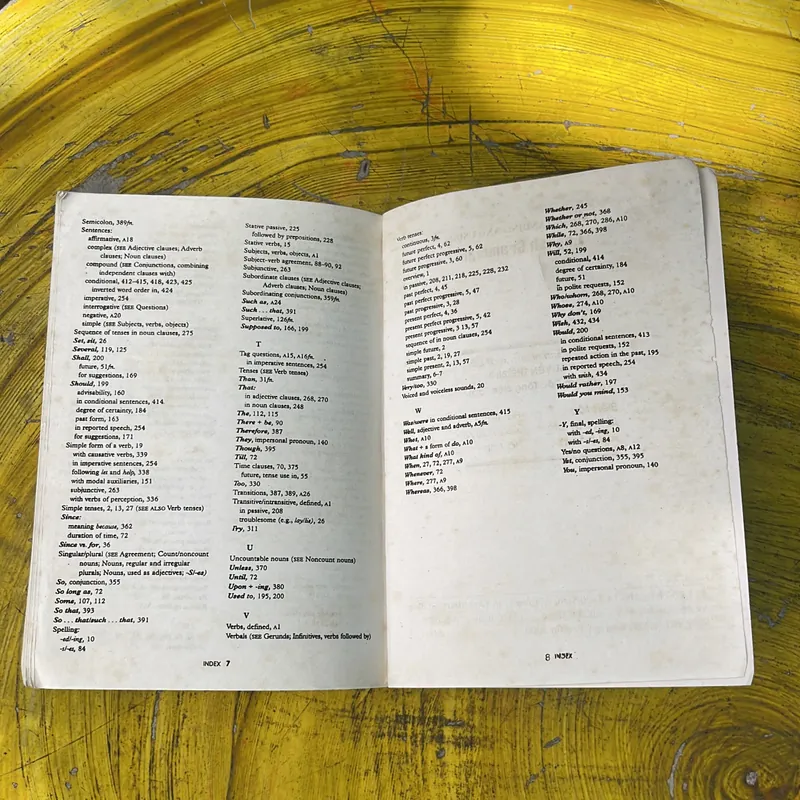 Semicolon, 389fn.
Sentences:
affirmative, A18
complex (SEE Adjective clauses; Adverb
clauses; Noun clauses)
compound (SEE Conjunctions, combining
independent clauses with)
conditional, 412–415, 418, 423, 425
inverted word order in, 424
imperative, 254
interrogative (SEE Questions)
negative, A20
simple (SEE Subjects, verbs, objects)
Sequence of tenses in noun clauses, 275
Set, sit, 26
Several, 119, 125
Shall, 200
future, 51fn.
for suggestions, 169
Should, 199
advisability, 160
in conditional sentences, 414
degree of certainty, 184
past form, 163
in reported speech, 254
for suggestions, 171
Simple form of a verb, 19
with causative verbs, 339
in imperative sentences, 254
following let and help, 338
with modal auxiliaries, 151
subjunctive, 263
with verbs of perception, 336
Simple tenses, 2, 13, 27 (SEE ALSO Verb tenses)
Since:
meaning because, 362
duration of time, 72
Since vs. for, 36
Singular/plural (SEE Agreement; Count/noncount
nouns; Nouns, regular and irregular
plurals; Nouns, used as adjectives; -S/-es)
So, conjunction, 355
So long as, 72
Some, 107, 112
So that, 393
So . . . that/such . . . that, 391
Spelling:
-ed/-ing, 10
-s/-es, 84
Stative passive, 225
followed by prepositions, 228
Stative verbs, 15
Subjects, verbs, objects, A1
Subject–verb agreement, 88–90, 92
Subjunctive, 263
Subordinate clauses (SEE Adjective clauses;
Adverb clauses; Noun clauses)
Subordinating conjunctions, 359fn.
Such as, A24
Such . . . that, 391
Superlative, 126fn.
Supposed to, 166, 199
T
Tag questions, A15, A16fn.
in imperative sentences, 254
Tenses (SEE Verb tenses)
Than, 31fn.
That:
in adjective clauses, 268, 270
in noun clauses, 248
The, 112, 115
There + be, 90
Therefore, 387
They, impersonal pronoun, 140
Though, 395
Till, 72
Time clauses, 70, 375
future, tense use in, 55
Too, 330
Transitions, 387, 389, A26
Transitive/intransitive, defined, A1
in passive, 208
troublesome (e.g., lay/lie), 26
Try, 311
U
Uncountable nouns (SEE Noncount nouns)
Unless, 370
Until, 72
Upon + -ing, 380
Used to, 195, 200
V
Verbs, defined, A1
Verbals (SEE Gerunds; Infinitives, verbs followed by)
INDEX 7
Verb tenses:
continuous, 3fn.
future perfect, 4, 62
future perfect progressive, 5, 62
future progressive, 3, 60
overview, 1
in passive, 208, 211, 218, 225, 228, 232
past perfect, 4, 45
past perfect progressive, 5, 47
past progressive, 3, 28
present perfect, 4, 36
present perfect progressive, 5, 42
present progressive, 3, 13, 57
sequence of in noun clauses, 254
simple future, 2
simple past, 2, 19, 27
simple present, 2, 13, 57
summary, 6–7
Very/too, 330
Voiced and voiceless sounds, 20
W
Was/were in conditional sentences, 415
Well, adjective and adverb, A5fn.
What, A10
What + a form of do, A10
What kind of, A10
When, 27, 72, 277, A9
Whenever, 72
Where, 277, A9
Whereas, 366, 398
Whether, 245
Whether or not, 368
Which, 268, 270, 286, A10
While, 72, 366, 398
Why, A9
Will, 52, 199
conditional, 414
degree of certainty, 184
future, 51
in polite requests, 152
Who/whom, 268, 270, A10
Whose, 274, A10
Why don't, 169
Wish, 432, 434
Would, 200
in conditional sentences, 413
in polite requests, 152
repeated action in the past, 195
in reported speech, 254
with wish, 434
Would rather, 197
Would you mind, 153
Y
-Y, final, spelling:
with -ed, -ing, 10
with -s/-es, 84
Yes/no questions, A8, A12
Yet, conjunction, 355, 395
You, impersonal pronoun, 140
8 INDEX